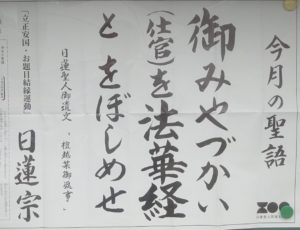 今月の聖語
御みやづかい
(仕官)を法華経
とをぼしめせ
日蓮聖人御遺文
「檀越某御返事」
「立正安国・お題目結縁運動」
日蓮宗